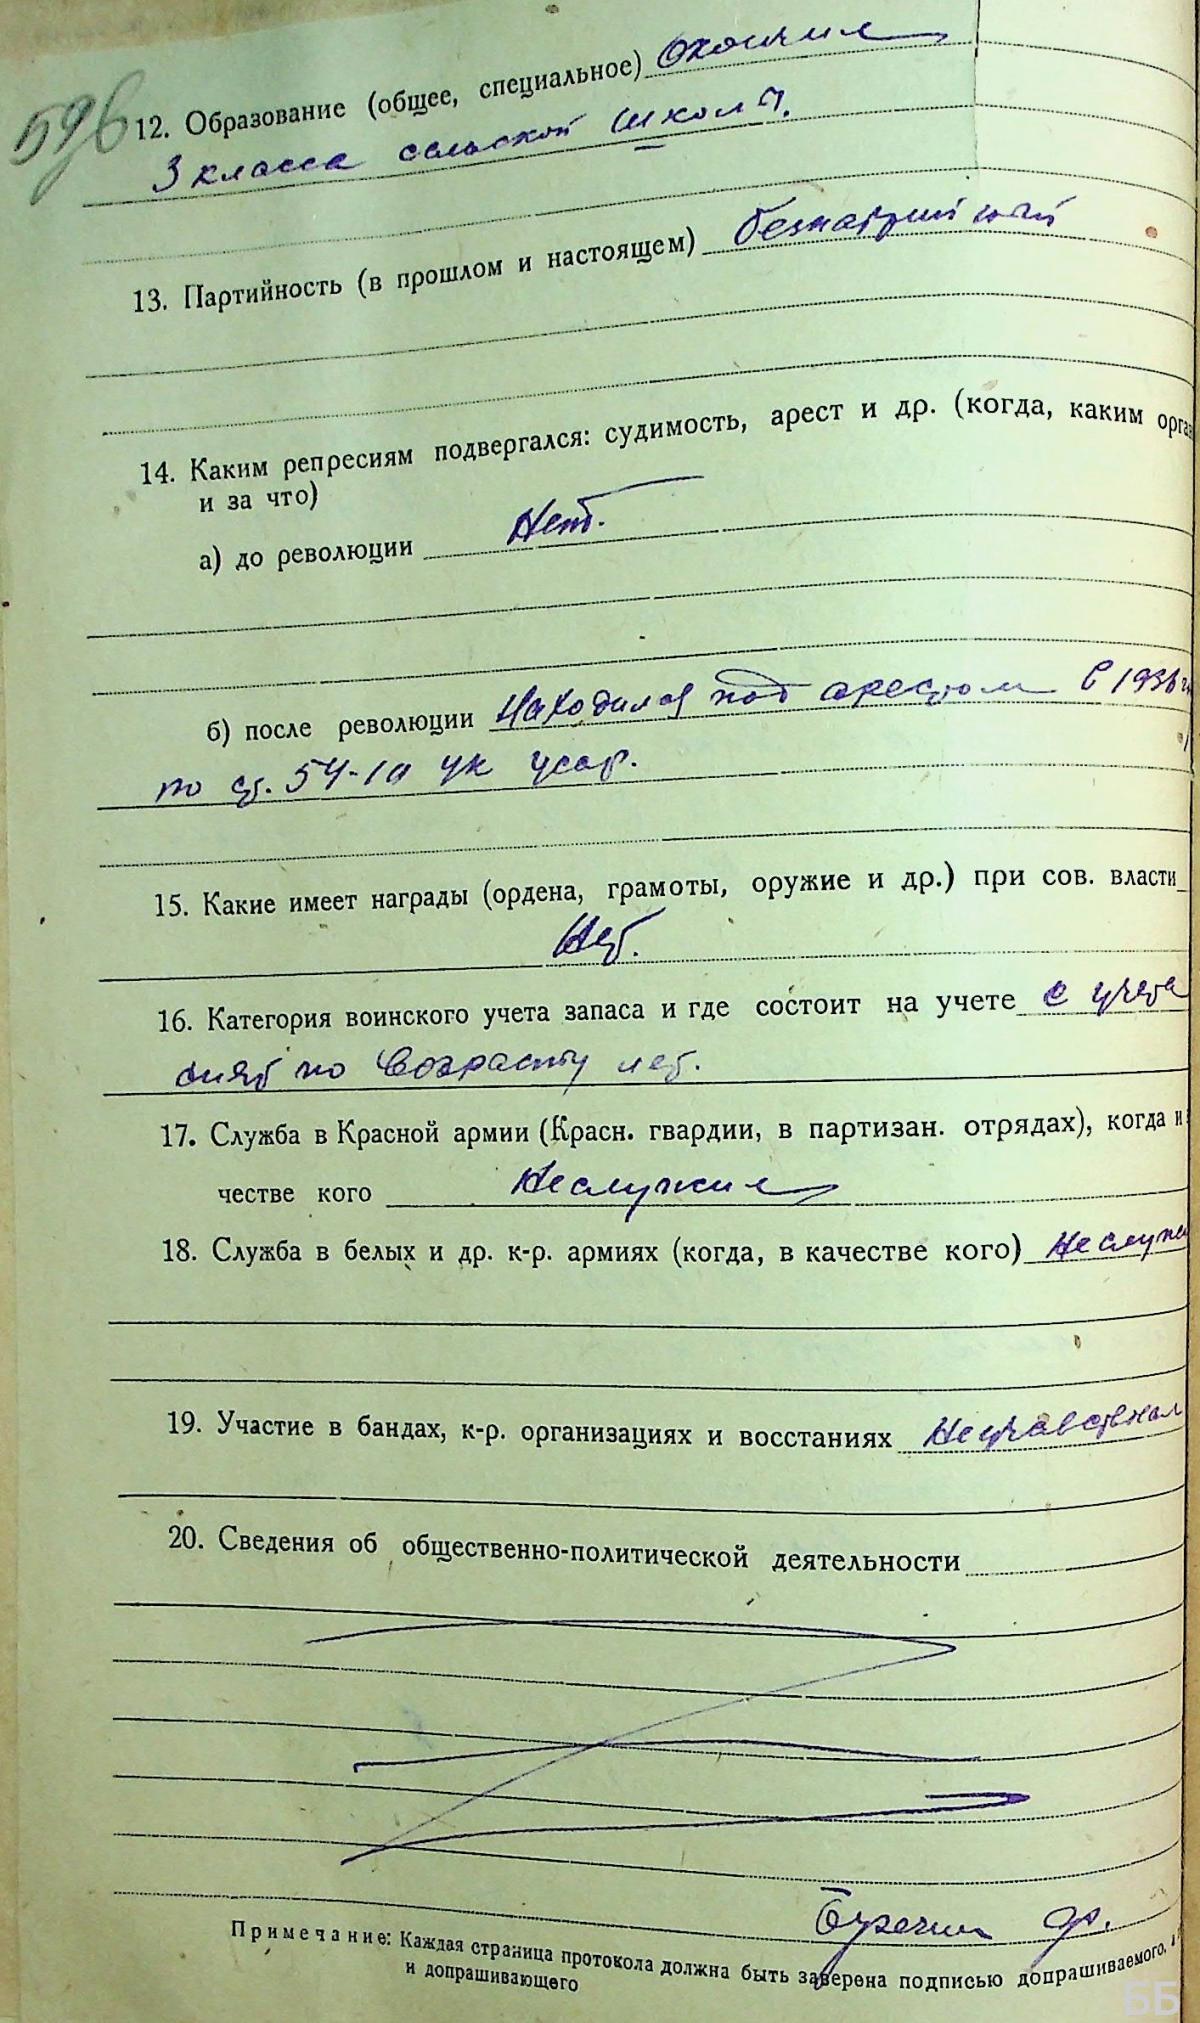 12. Образование (общее, специальное) Окончил
3 класса сельской школы.
13. Партийность (в прошлом и настоящем) беспартийный
14. Каким репресиям подвергался: судимость, арест и др. (когда, каким орга
и за что)
а) до революции Нет.
б) после революции Находился под арестом в 193
по ст. 54-10 ук усср.
15. Какие имеет награды (ордена, грамоты, оружие и др.) при сов. власти
Нет.
16. Категория воинского учета запаса и где состоит на учете с учета
снят по возрасту лет.
17. Служба в Красной армии (Красн. гвардии, в партизан. отрядах), когда и
честве кого Неслужил
18. Служба в белых и др. к-р. армиях (когда, в качестве кого) Неслужи
19. Участие в бандах, к-р. организациях и восстаниях Неучавствовал
20. Сведения об общественно-политической деятельности
Примечание: Каждая страница протокола должна быть заверена подписью допрашиваемого.
и допрашивающего
ББ